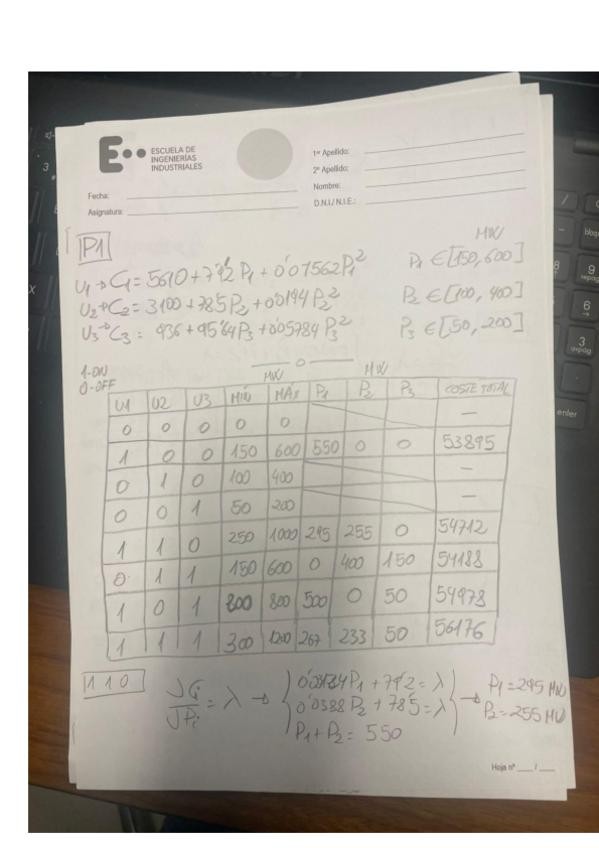 E
ESCUELA DE
INGENIERÍAS
INDUSTRIALES
1er Apellido:
2º Apellido:
Nombre:
D.N.I./ N.I.E.:
Fecha:
Asignatura:
P1
MW
U1 → C1 = 5610 + 7'92 P1 + 0'01562 P1²   P1 ∈ [150, 600]
U2 → C2 = 3100 + 7'85 P2 + 0'0194 P2²   P2 ∈ [100, 400]
U3 → C3 = 936 + 9'564 P3 + 0'05784 P3²   P3 ∈ [50, 200]
1-ON
0-OFF
MW MW
U1 U2 U3 MÍN MÁX P1 P2 P3 COSTE TOTAL
0 0 0 0 0 —
1 0 0 150 600 550 0 0 53895
0 1 0 100 400 —
0 0 1 50 200 —
1 1 0 250 1000 295 255 0 54712
0 1 1 150 600 0 400 150 54188
1 0 1 200 800 500 0 50 54978
1 1 1 300 1200 267 233 50 56176
1 1 0
∂Ci/∂Pi = λ →
0'03124 P1 + 7'92 = λ
0'0388 P2 + 7'85 = λ
P1 + P2 = 550
→ P1 = 295 MW
P2 = 255 MW
Hoja nº ___ / ___